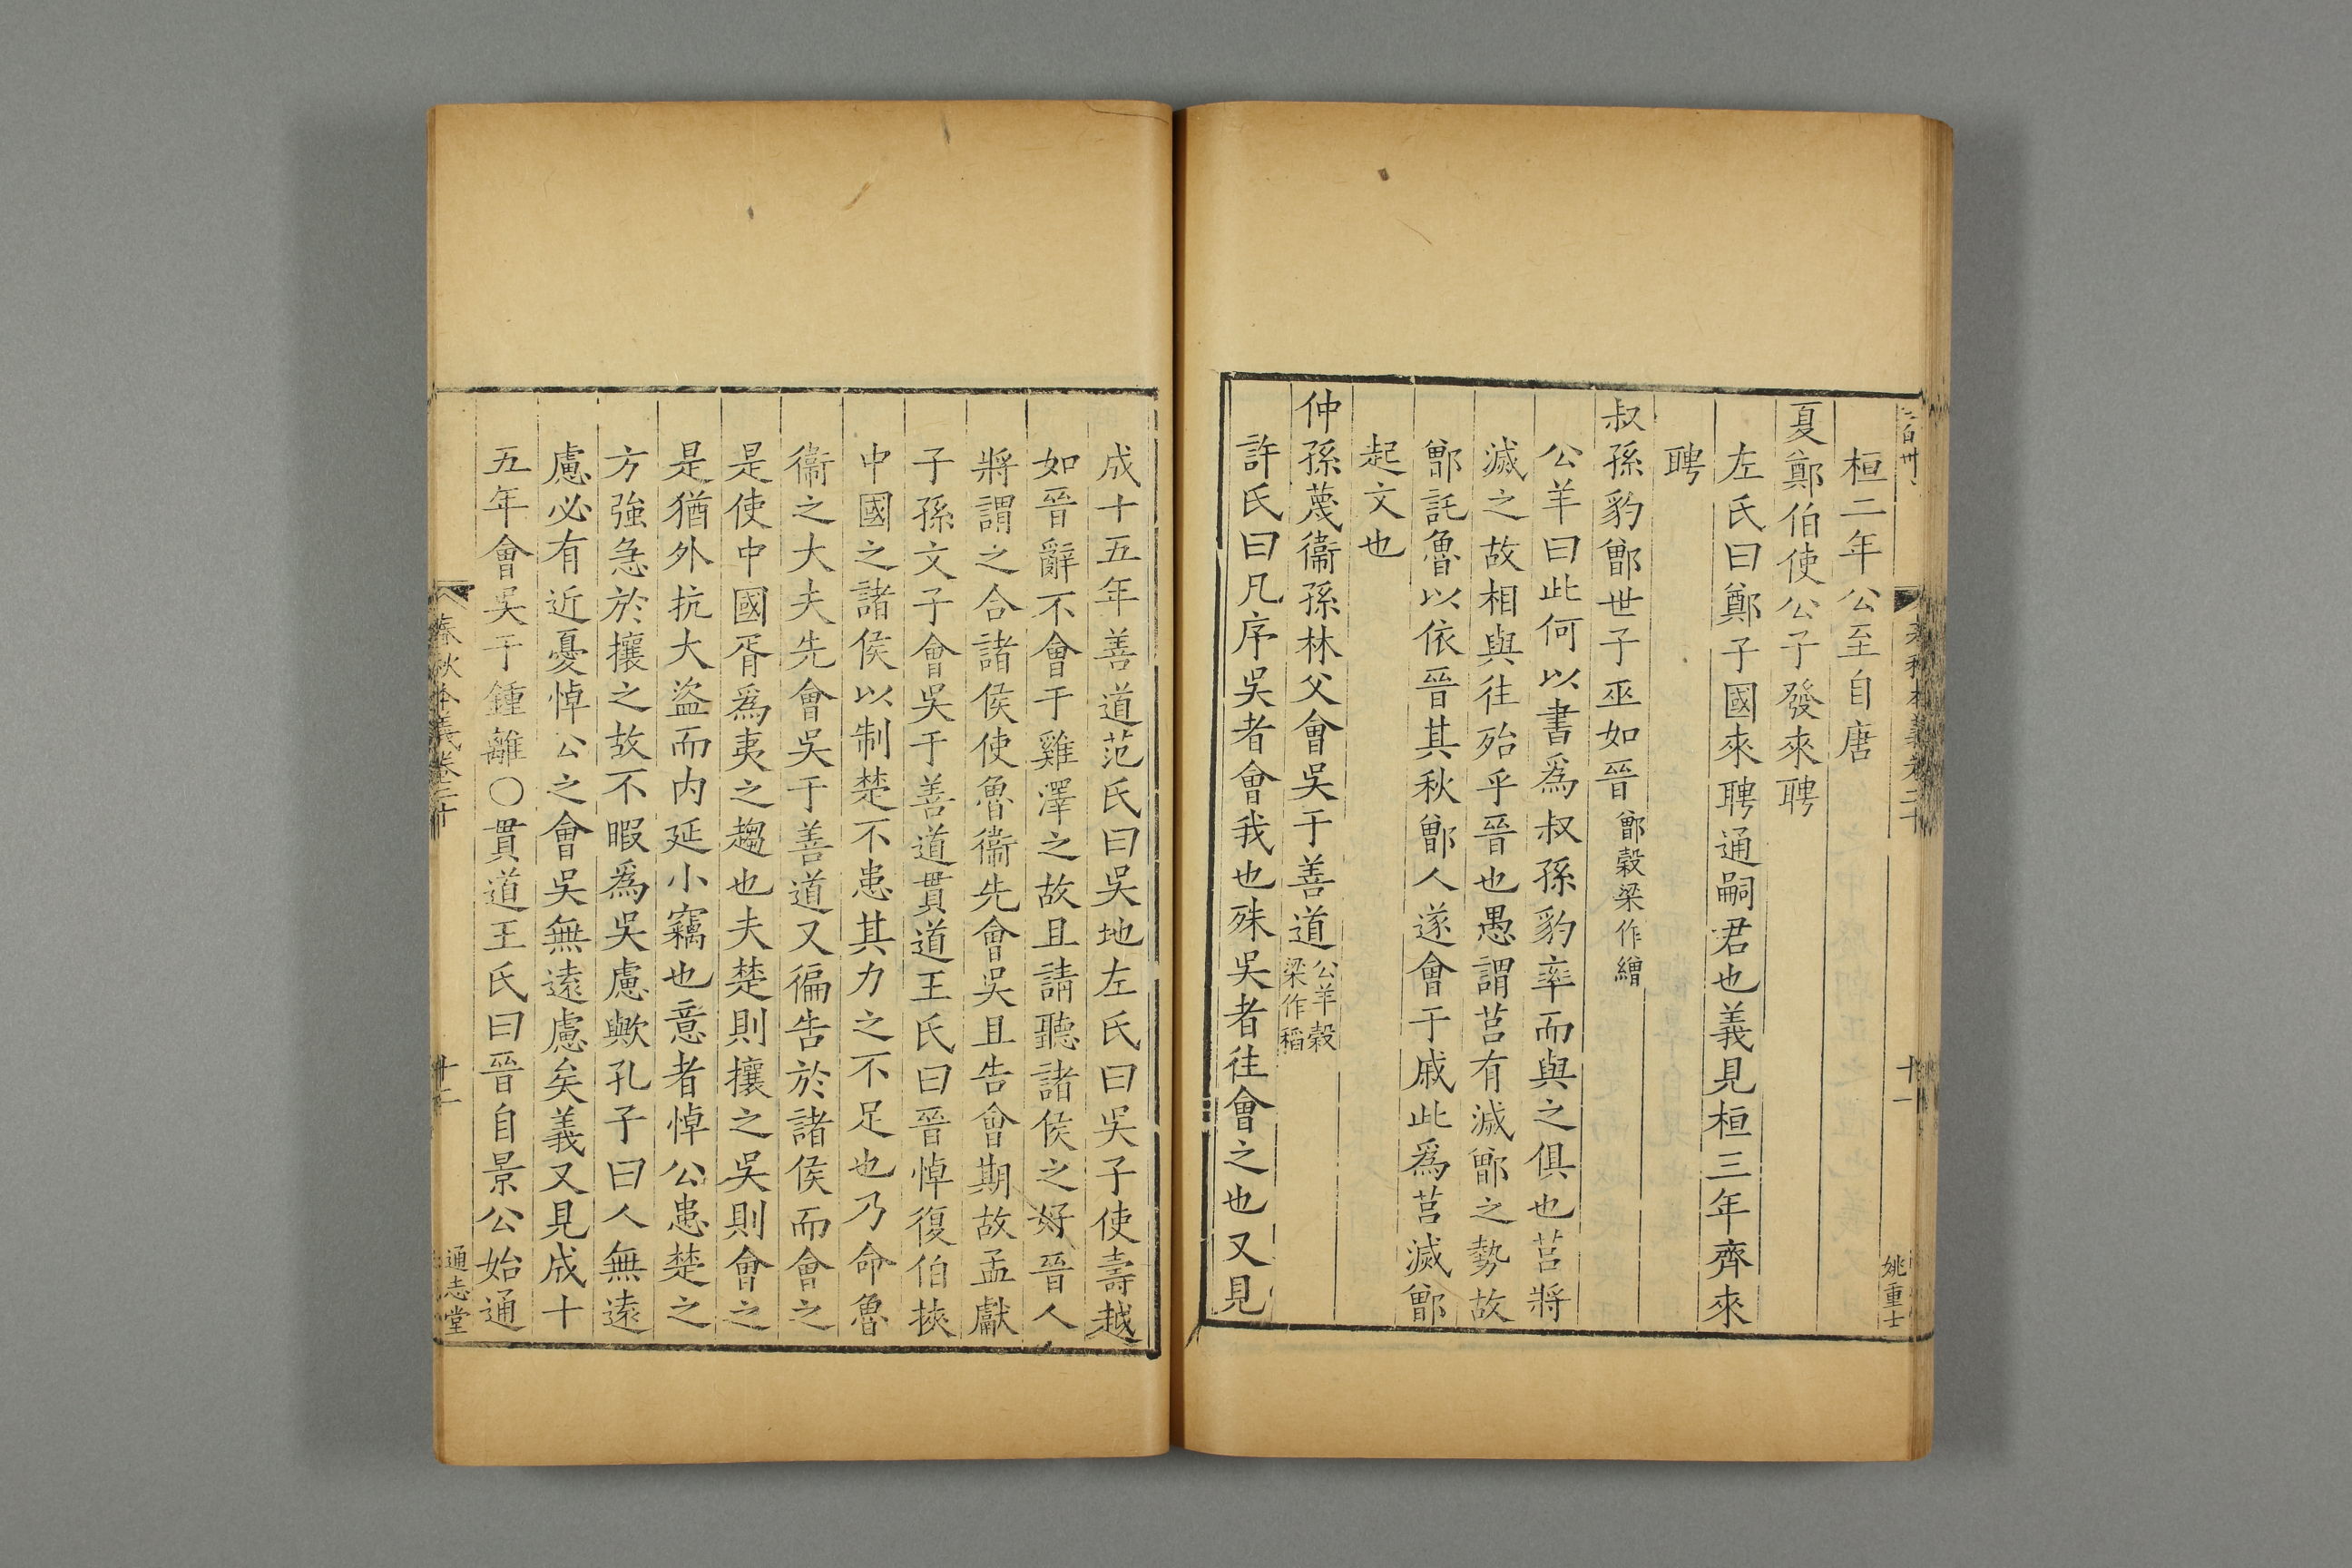 桓二年公至自唐
夏鄭伯使公子發來聘
左氏曰鄭子國來聘通嗣君也義見桓三年齊來
聘
叔孫豹鄫世子巫如晉鄫穀梁作繒
公羊曰此何以書爲叔孫豹率而與之俱也莒將
滅之故相與往殆乎晉也愚謂莒有滅鄫之勢故
鄫託魯以依晉其秋鄫人遂會于戚此爲莒滅鄫
起文也
仲孫蔑衞孫林父會吳于善道公羊穀梁作稻
許氏曰凡序吳者會我也殊吳者往會之也又見
成十五年善道范氏曰吳地左氏曰吳子使壽越
如晉辭不會于雞澤之故且請聽諸侯之好晉人
將謂之合諸侯使魯衞先會吳且告會期故孟獻
子孫文子會吳于善道貫道王氏曰晉悼復伯挾
中國之諸侯以制楚不患其力之不足也乃命魯
衞之大夫先會吳于善道又徧告於諸侯而會之
是使中國胥爲夷之趨也夫楚則攘之吳則會之
是猶外抗大盜而内延小竊也意者悼公患楚之
方強急於攘之故不暇爲吳慮歟孔子曰人無遠
慮必有近憂悼公之會吳無遠慮矣義又見成十
五年會吳于鍾離○貫道王氏曰晉自景公始通
春秋本義卷二十
十二
通志堂
十一
姚重士